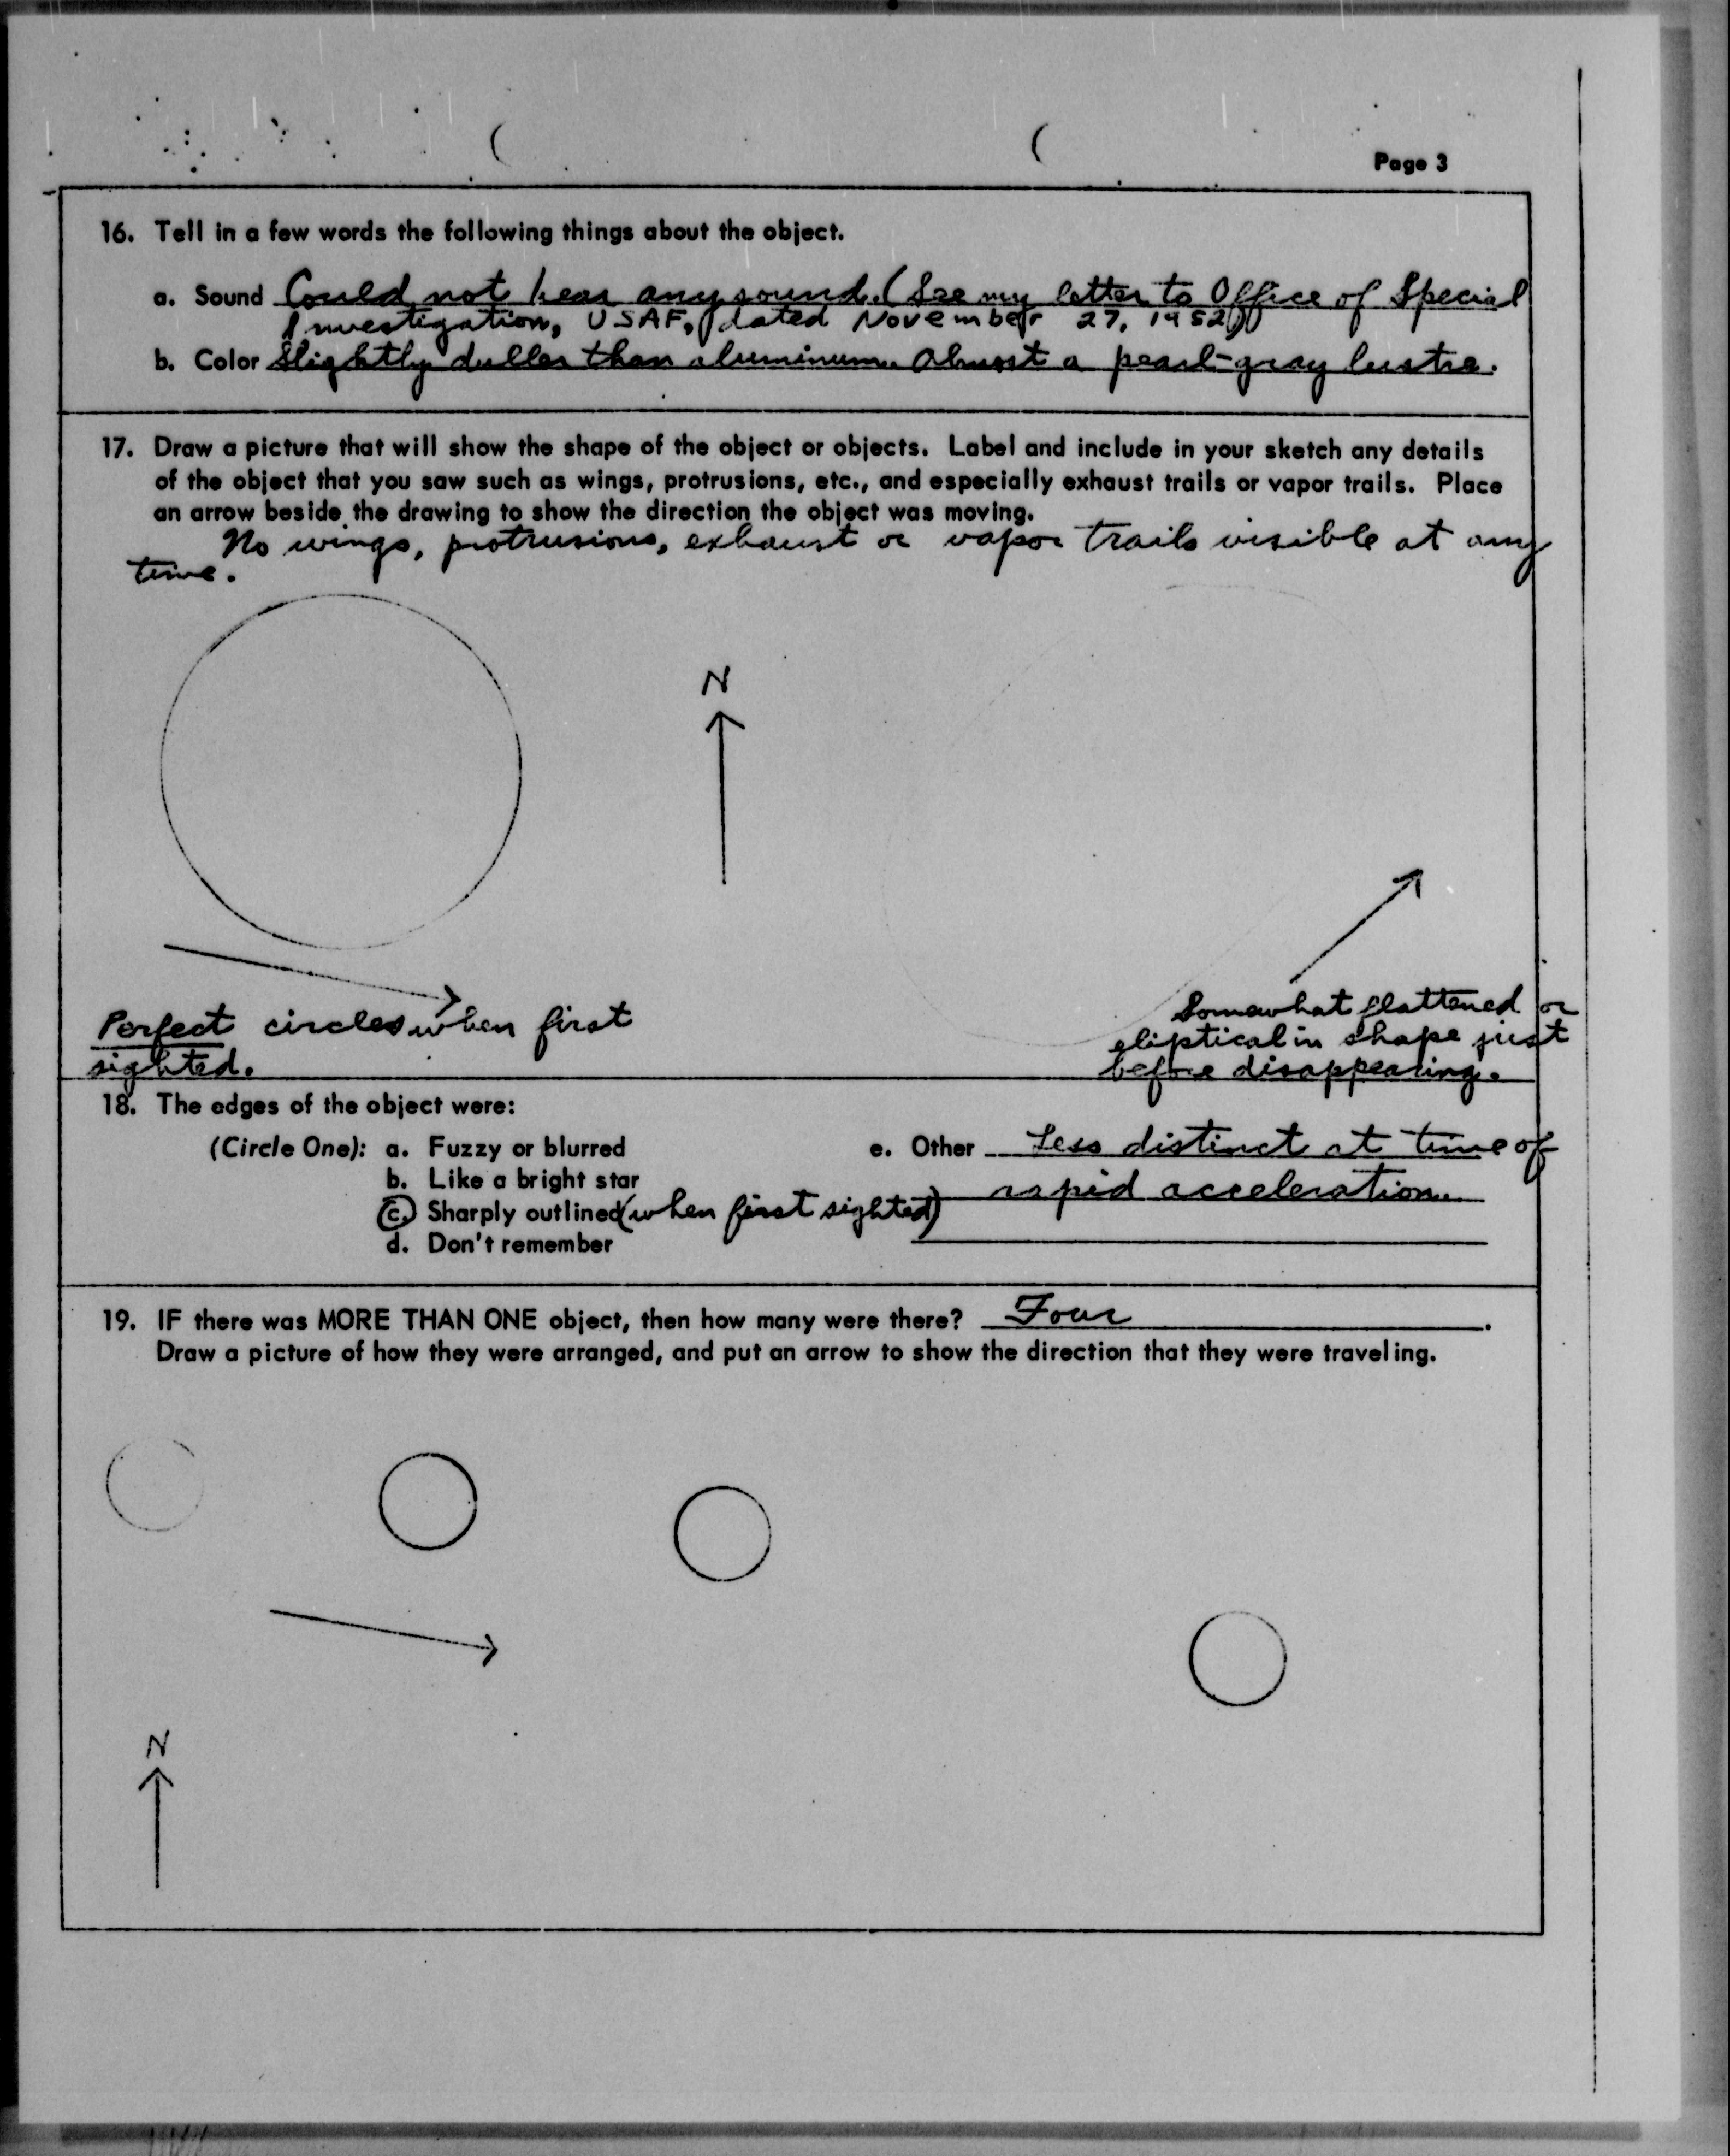 Page 3
16. Tell in a few words the following things about the object.
a. Sound Could not hear any sound. (See my letter to Office of Special
Investigation, USAF, dated November 27, 1952)
b. Color Slightly duller than aluminum. Almost a pearl-gray lustre.
17. Draw a picture that will show the shape of the object or objects. Label and include in your sketch any details
of the object that you saw such as wings, protrusions, etc., and especially exhaust trails or vapor trails. Place
an arrow beside the drawing to show the direction the object was moving.
No wings, protrusions, exhaust or vapor trails visible at any
time.
N
Perfect circles when first
sighted.
Somewhat flattened or
eliptical in shape just
before disappearing.
18. The edges of the object were:
(Circle One): a. Fuzzy or blurred
b. Like a bright star
c. Sharply outlined (when first sighted)
d. Don't remember
e. Other Less distinct at time of
rapid acceleration.
19. IF there was MORE THAN ONE object, then how many were there? Four.
Draw a picture of how they were arranged, and put an arrow to show the direction that they were traveling.
N